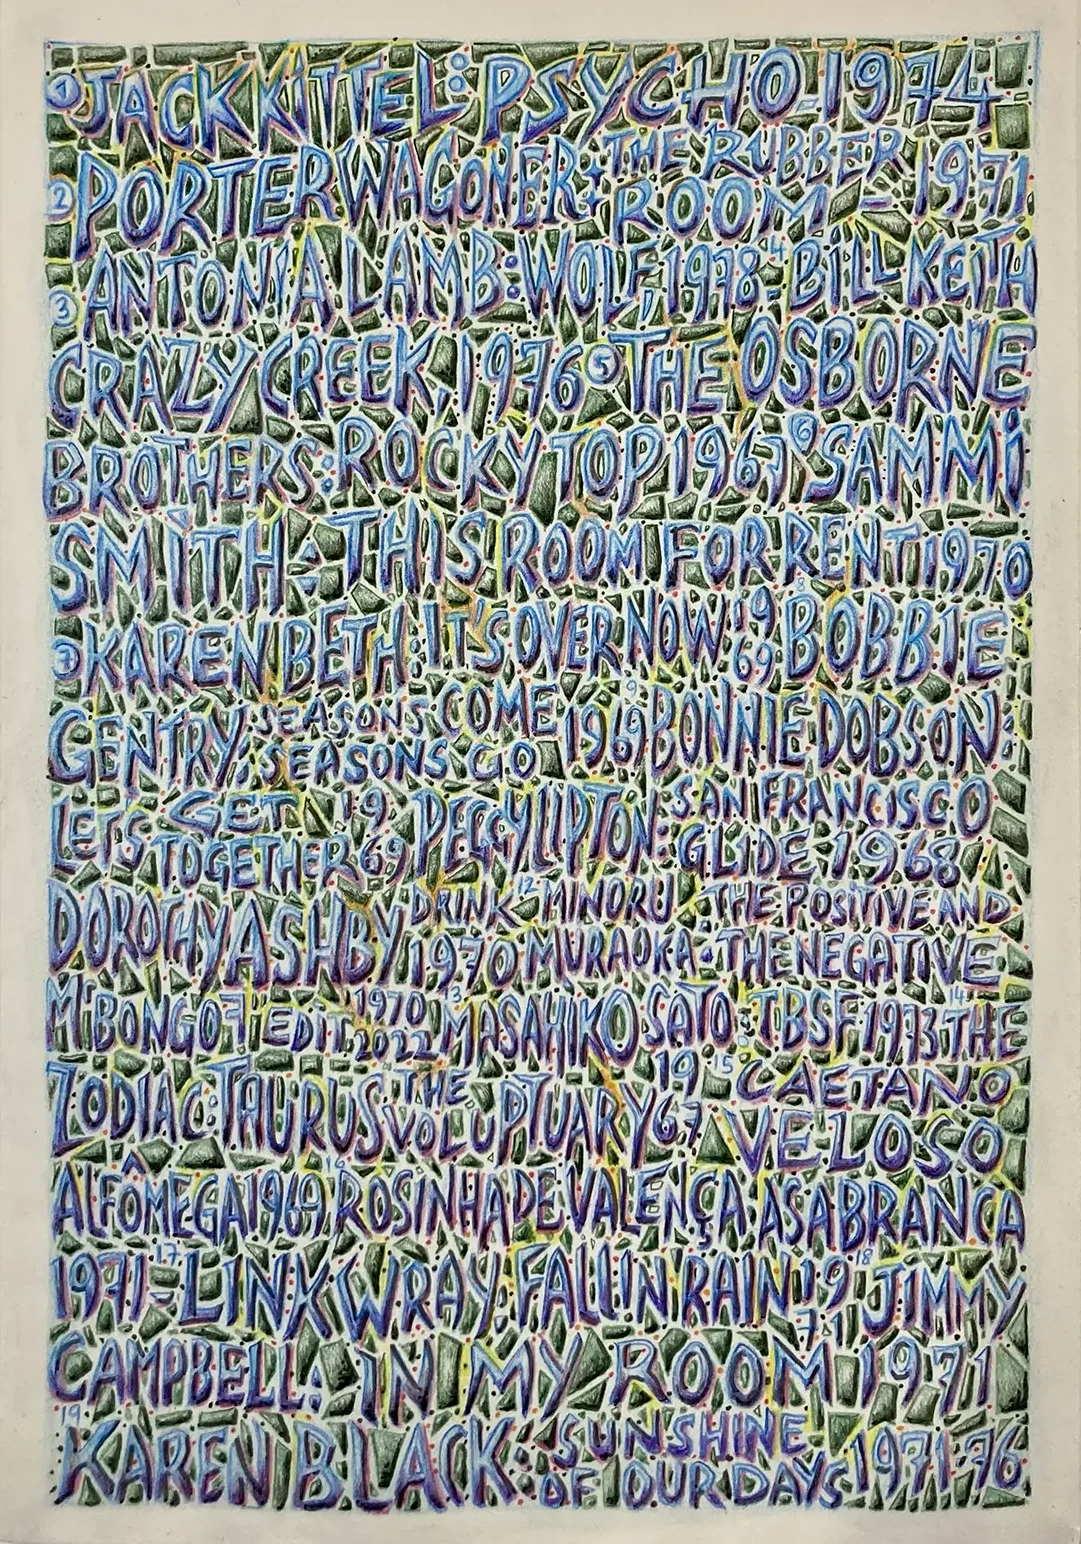 ① JACK KITTEL: PSYCHO - 1974 -
② PORTER WAGONER + THE RUBBER ROOM - 1971
③ ANTONIA LAMB: WOLF, 1978 - 4 - BILL KEITH
CRAZY CREEK, 1976 ⑤ THE OSBORNE
BROTHERS: ROCKY TOP 1967 ⑥ SAMMI
SMITH: THIS ROOM FOR RENT 1970
⑦ KAREN BETH: IT'S OVER NOW 1969 8 BOBBIE
GENTRY: SEASONS COME SEASONS GO 1969 9 BONNIE DOBSON:
LET'S GET TOGETHER 1969 PEGGY LIPTON: SAN FRANCISCO GLIDE 1968
DOROTHY ASHBY DRINK 1970 12 MINORU MURAOKA: THE POSITIVE AND THE NEGATIVE
M'BONGO 7" EDIT 1970 2022 13 MASAHIKO SATO: TBSF 1973 14 THE
ZODIAC: TAURUS THE VOLUPTUARY 1967 15 CAETANO VELOSO
ALFÔMEGA 1969 16 ROSINHA DE VALENÇA: ASA BRANCA
1971 - 17 - LINK WRAY: FALLIN RAIN 1971 18 JIMMY
CAMPBELL: IN MY ROOM 1971
19 KAREN BLACK: SUNSHINE OF OUR DAYS 1971-76